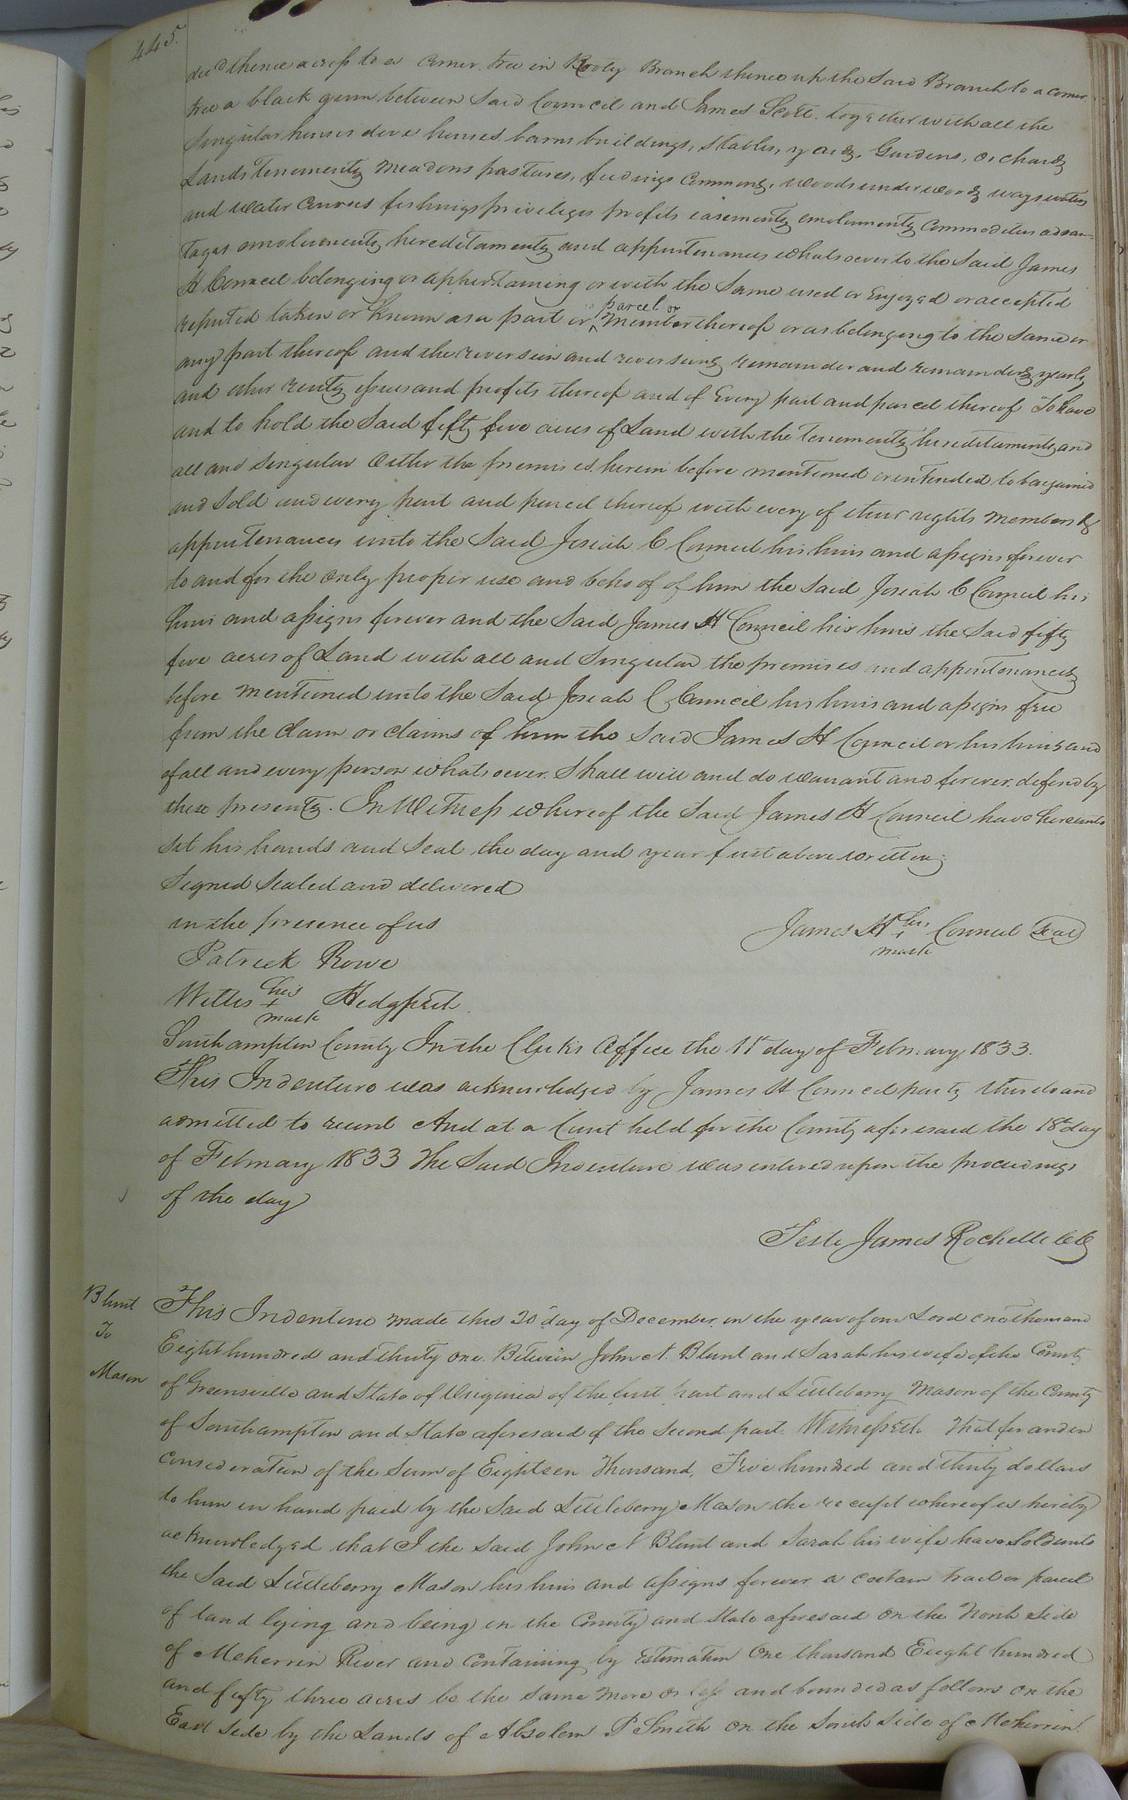 445.
ded thence across to a corner tree in Rooty Branch thence up the said Branch to a corner
tree a black gum between said Council and James Scott. together with all the
Singular houses dove houses barns buildings, stables, yards, Gardens, orchards
Lands tenements meadows pastures, feedings commons, woods underwoods ways waters
and water courses fishings priveleges profits easements emoluments commodities advan-
tages emoluments hereditaments and appurtenances whatsoever to the said James
H Council belonging or appertaining or with the same used or Enjoyed or accepted
reputed taken or known as a part or parcel or member thereof or as belonging to the same or
any part thereof and the reversion and reversions remainder and remainders yearly
and other rents issues and profits thereof and of Every part and parcel thereof To have
and to hold the said fifty five acres of Land with the tenements hereditaments and
all and singular other the premises herein before mentioned or intended to bargained
and sold and every part and parcel thereof with every of their rights members &
appurtenances unto the Said Josiah C Council his heirs and assigns forever
to and for the only proper use and behoof of him the said Josiah C Council his
heirs and assigns forever and the said James H Council his heirs the said fifty
five acres of Land with all and singular the premises and appurtenances
before mentioned unto the Said Josiah C Council his heirs and assigns free
from the claim or claims of him the said James H Council or his heirs and
of all and every person whatsoever. shall will and do warrant and forever defend by
these presents. In Witness whereof the said James H Council have hereunto
set his hands and seal the day and year first above written.
Signed sealed and delivered
in the presence of us
James H his + mark Council Seal
Patrick Rowe
Willis his + mark Hedgpeth
Southampton County In the Clerks Office the 11th day of February 1833.
This Indenture was acknowledged by James H Council party thereto and
admitted to record And at a Court held for the County aforesaid the 18th day
of February 1833 The Said Indenture was entered upon the proceedings
of the day
Teste James Rochelle CC
Blunt
To
Mason
This Indenture made this 20th day of December, in the year of our Lord one thousand
Eight hundred and thirty one. Between John N. Blunt and Sarah his wife of the County
of Greensville and State of Virginia of the first part and Littleberry Mason of the County
of Southampton and State aforesaid of the second part. Witnesseth That for and in
consideration of the sum of Eighteen Thousand, Five hundred and thirty dollars
to him in hand paid by the said Littleberry Mason the receipt whereof is hereby
acknowledged that I the said John N Blunt and Sarah his wife have sold unto
the said Littleberry Mason his heirs and assigns forever a certain tract or parcel
of land lying and being in the County and State aforesaid on the North side
of Meherrin River and Containing by Estimation One thousand Eight hundred
and fifty three acres be the same more or less and bounded as follows on the
East side by the Lands of Absolem P Smith on the South side of Meherrin